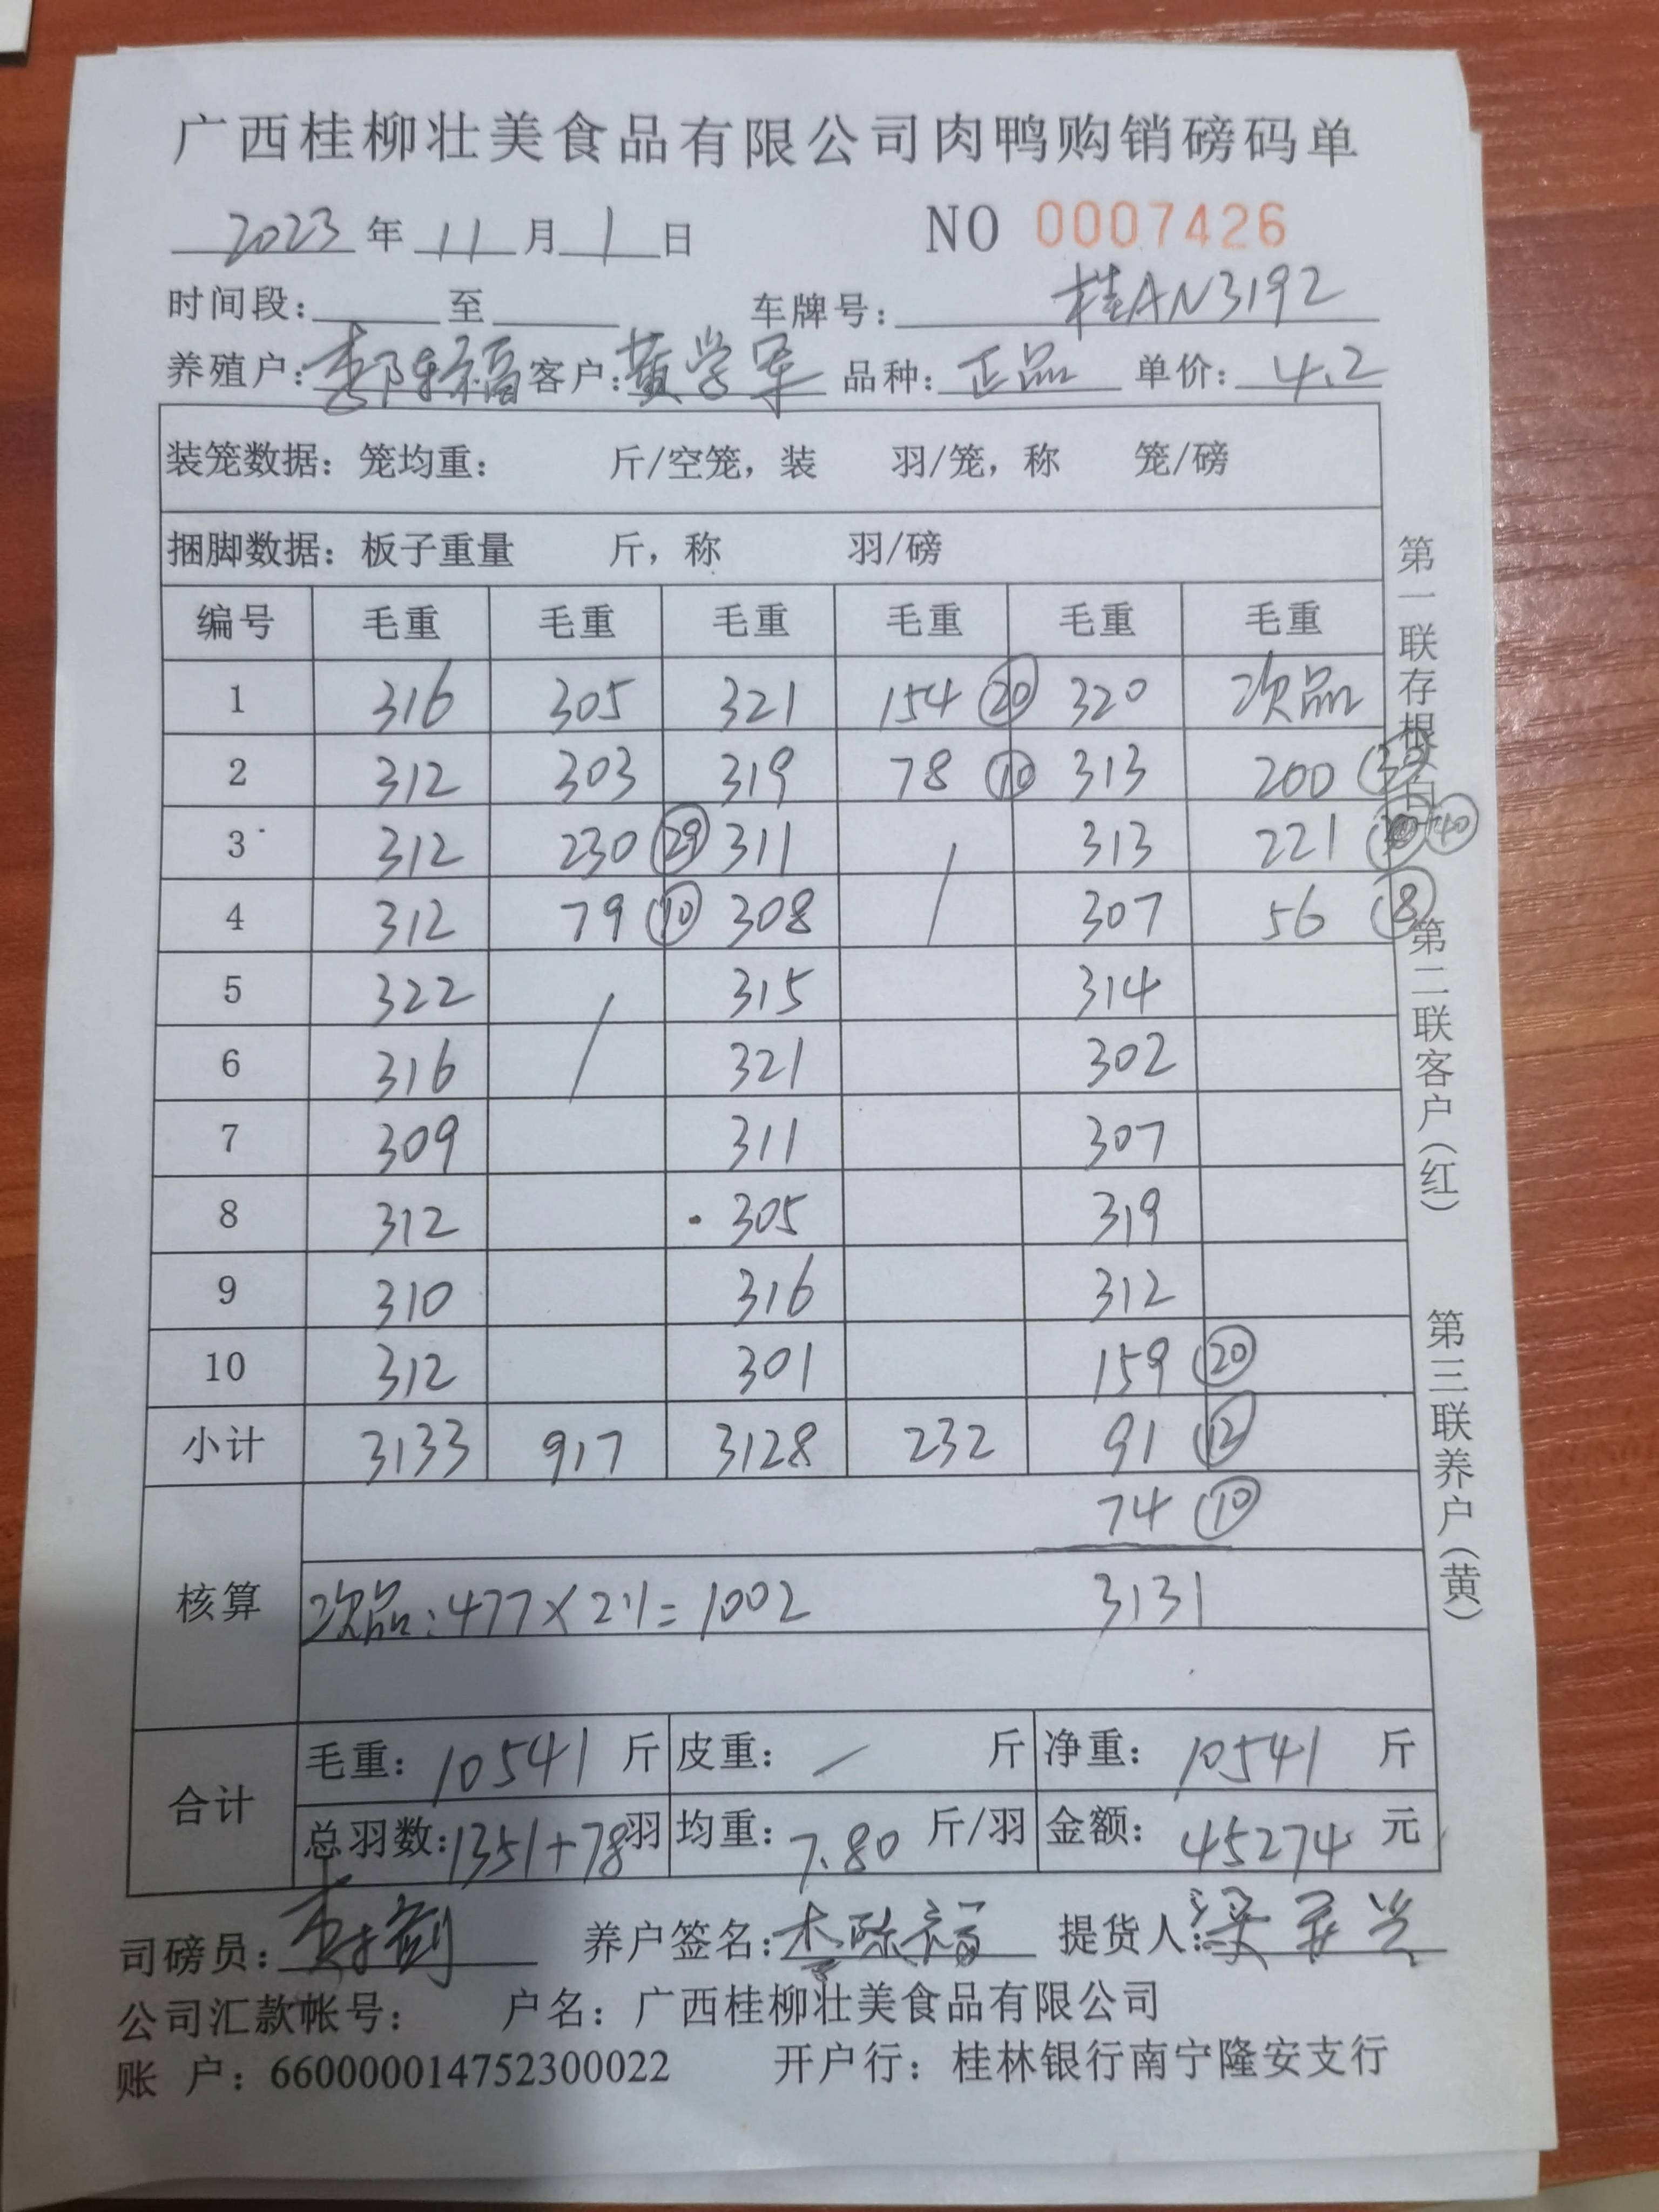 广西桂柳壮美食品有限公司肉鸭购销磅码单
2023 年 11 月 1 日 NO 0007426
时间段: 至 车牌号: 桂AN3192
养殖户: 客户: 黄学军 品种: 正品 单价: 4.2
装笼数据: 笼均重: 斤/空笼, 装 羽/笼, 称 笼/磅
捆脚数据: 板子重量 斤, 称 羽/磅
编号 毛重 毛重 毛重 毛重 毛重 毛重
1 316 305 321 154 ⑳ 320 次品
2 312 303 319 78 ⑩ 313 200
3 312 230 ㉙ 311 / 313 221 ㊵
4 312 79 ⑩ 308 307 56 ⑧
5 322 / 315 314
6 316 321 302
7 309 311 307
8 312 305 319
9 310 316 312
10 312 301 159 ⑳
小计 3133 917 3128 232 91 ⑫
74 ⑩
核算 次品: 477×2.1= 1002 3131
合计 毛重: 10541 斤 皮重: / 斤 净重: 10541 斤
总羽数: 1351+78 羽 均重: 7.80 斤/羽 金额: 45274 元
司磅员: 养户签名: 提货人:
公司汇款帐号: 户名: 广西桂柳壮美食品有限公司
账 户: 660000014752300022 开户行: 桂林银行南宁隆安支行
第一联存根
第二联客户(红)
第三联养户(黄)